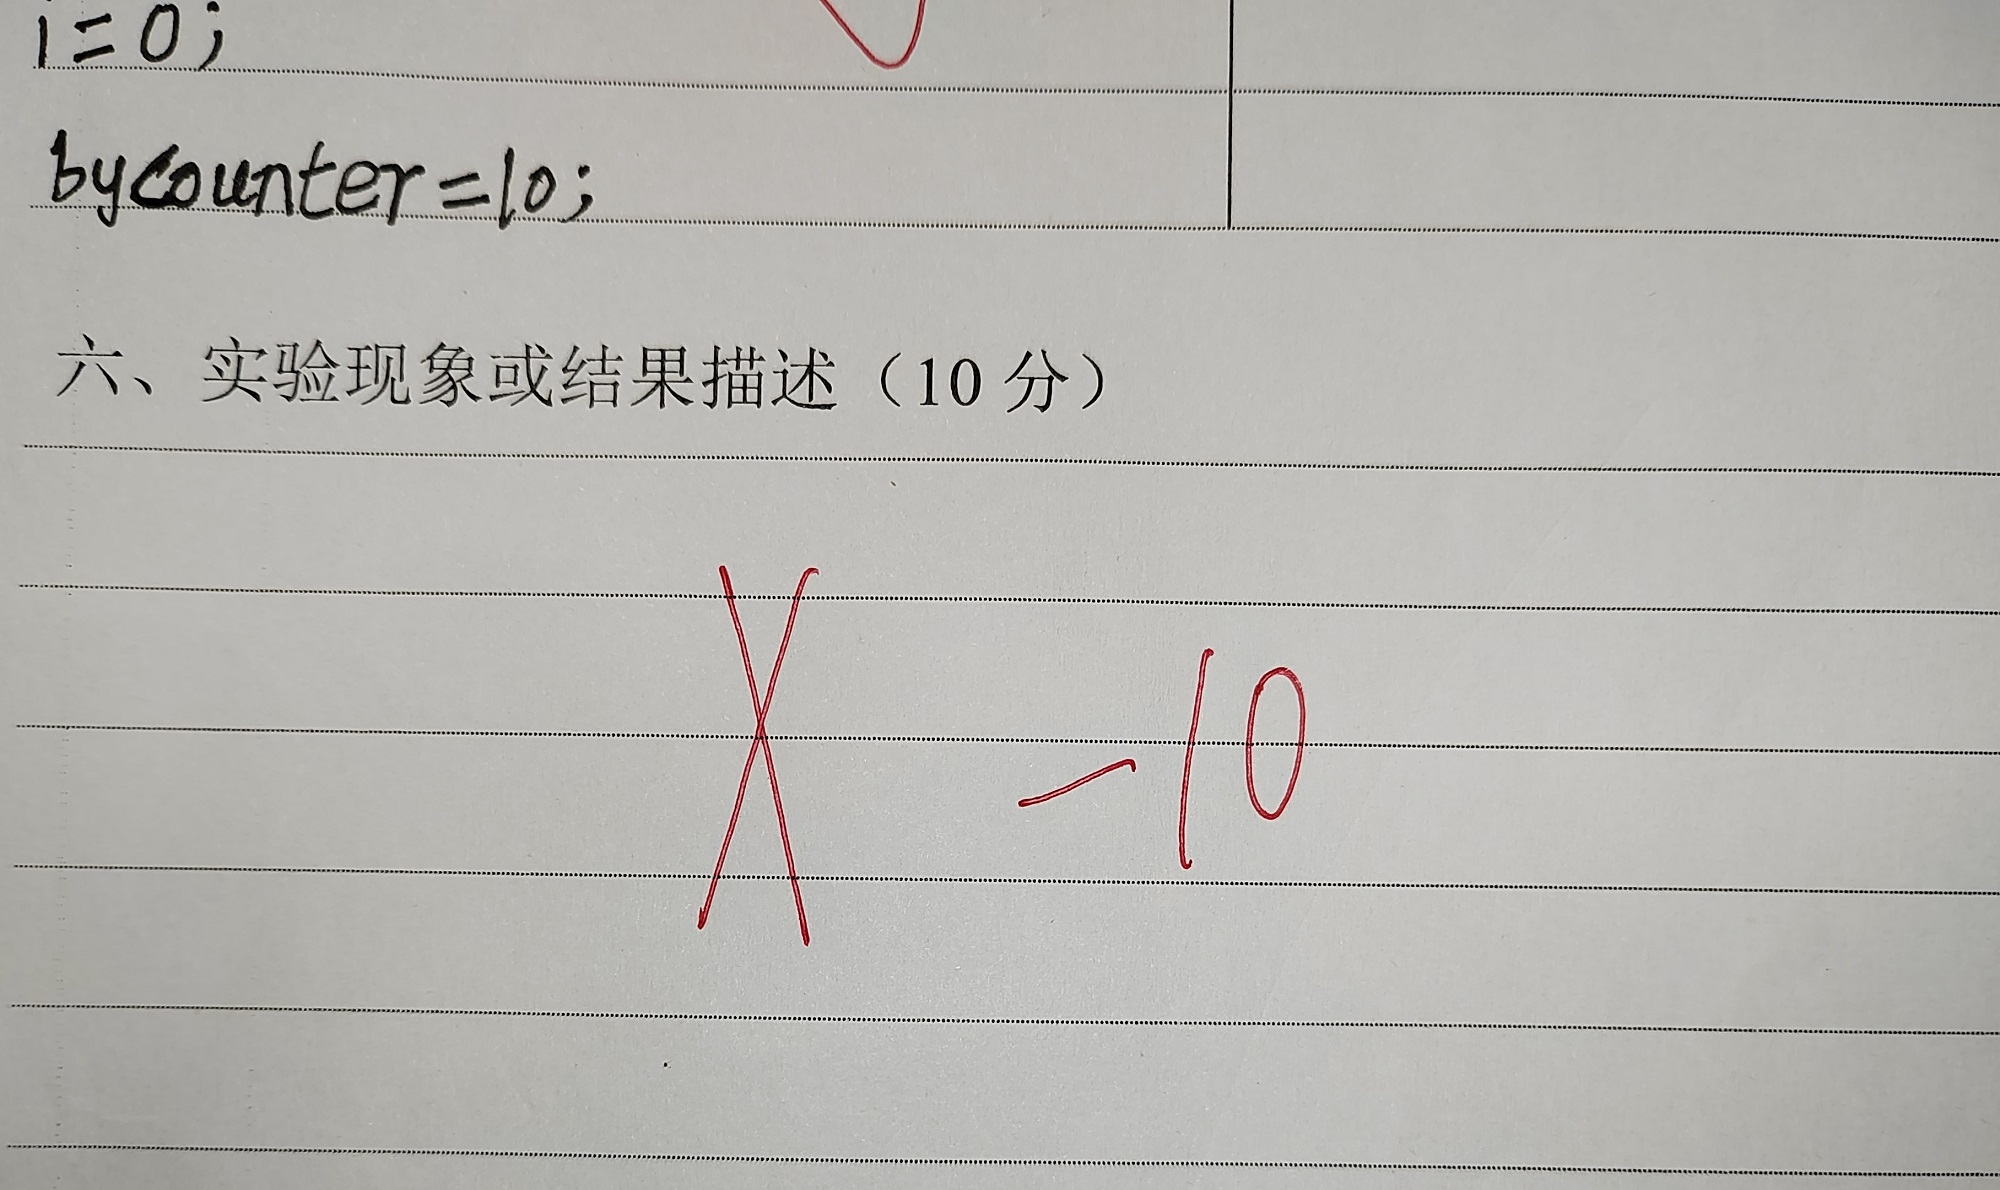 i=0;
bycounter=10;
六、实验现象或结果描述（10 分）
X -10